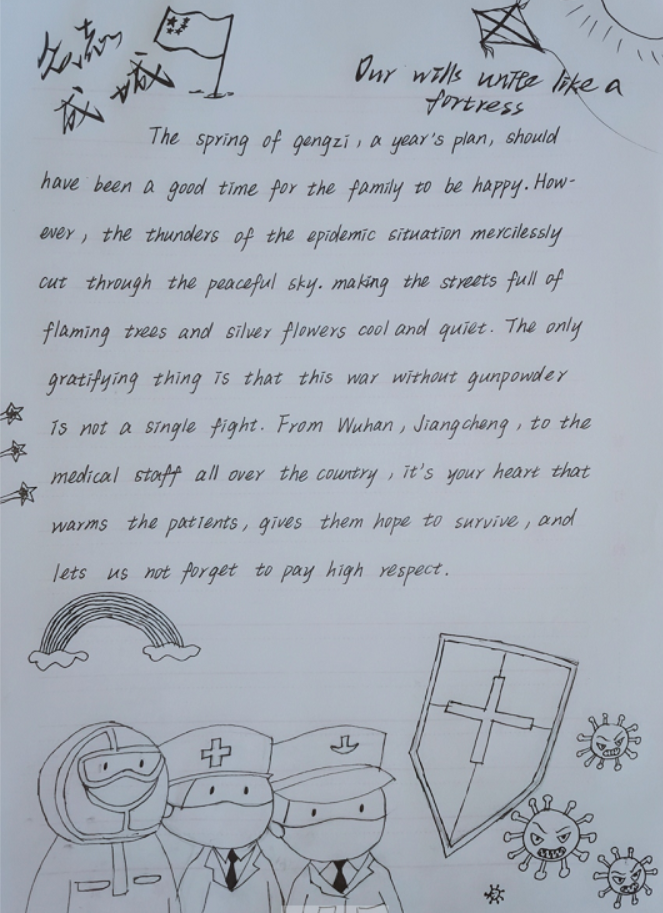 众志
成城
Our wills unite like a
fortress
The spring of gengzi, a year's plan, should
have been a good time for the family to be happy. How-
ever, the thunders of the epidemic situation mercilessly
cut through the peaceful sky. making the streets full of
flaming trees and silver flowers cool and quiet. The only
gratifying thing is that this war without gunpowder
is not a single fight. From Wuhan, Jiangcheng, to the
medical staff all over the country, it's your heart that
warms the patients, gives them hope to survive, and
lets us not forget to pay high respect.